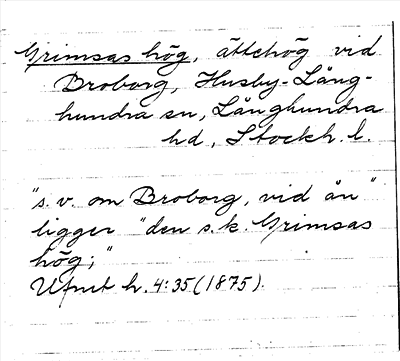 Grimsas hög, ättehög vid
Broborg, Husby-Lång-
hundra sn, Långhundra
hd, Stockh. l.
"s.v. om Broborg, vid ån"
ligger "den s.k. Grimsas
hög;"
Ufmt h. 4:35 (1875).